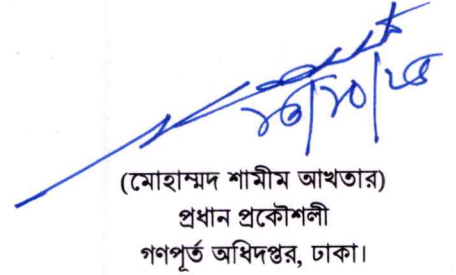 (মোহাম্মদ শামীম আখতার)
প্রধান প্রকৌশলী
গণপূর্ত অধিদপ্তর, ঢাকা।